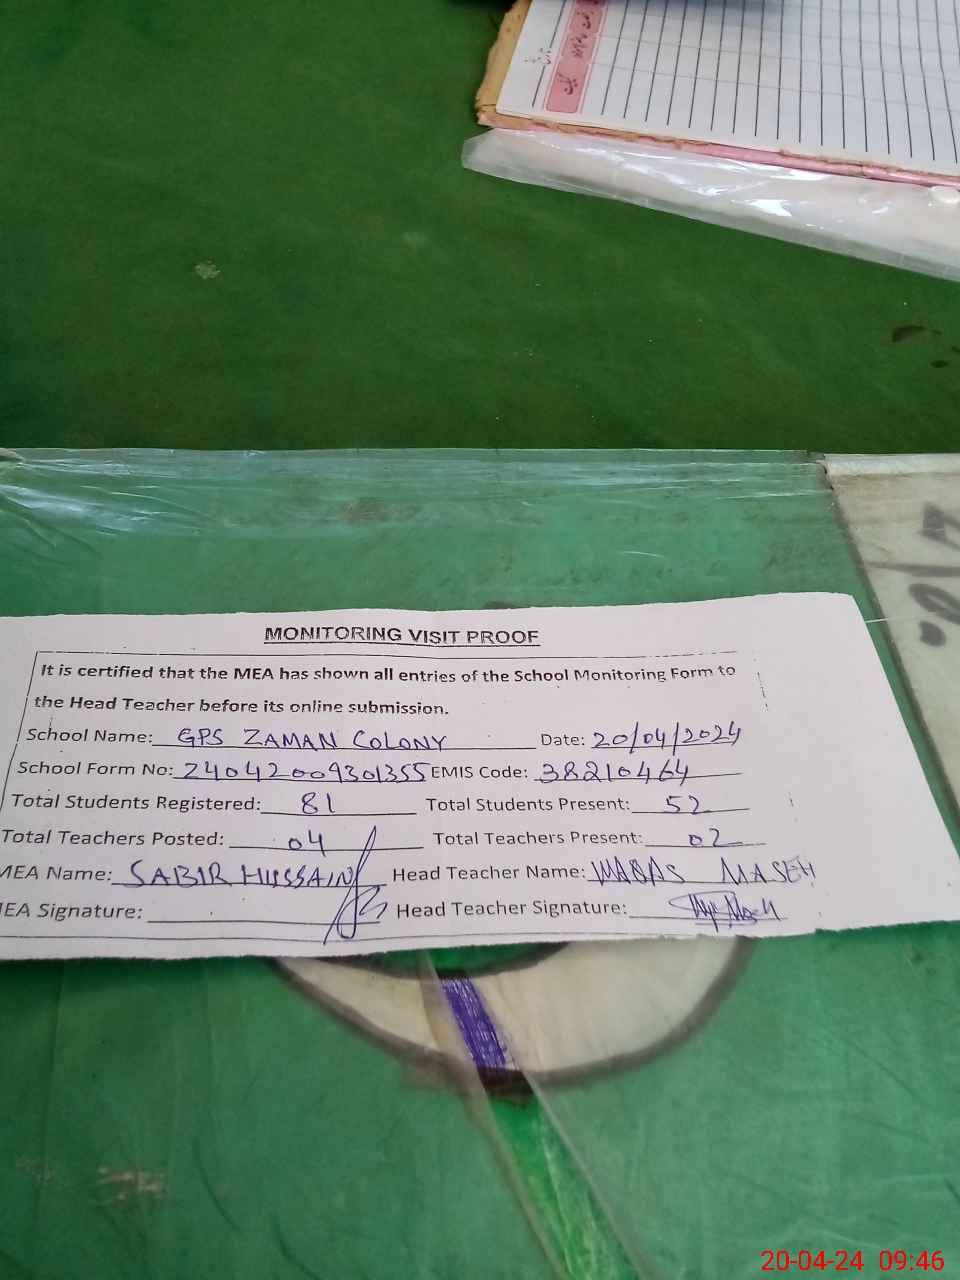 MONITORING VISIT PROOF
It is certified that the MEA has shown all entries of the School Monitoring Form to
the Head Teacher before its online submission.
School Name: GPS ZAMAN COLONY Date: 20/04/2024
School Form No: 24042009301355 EMIS Code: 38210464
Total Students Registered: 81 Total Students Present: 52
Total Teachers Posted: 04 Total Teachers Present: 02
MEA Name: SABIR HUSSAIN Head Teacher Name: MASEH
MEA Signature: Head Teacher Signature:
20-04-24 09:46